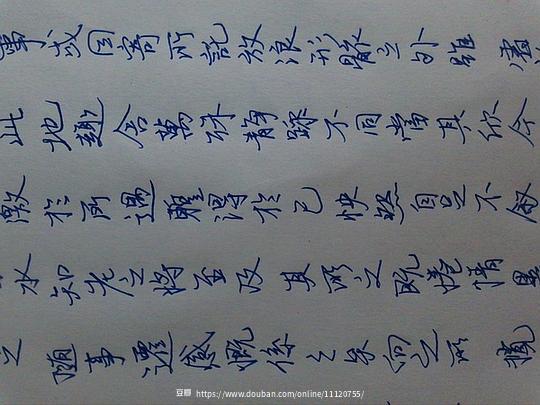 或因寄所託放浪形骸之外雖
此地趣舍萬殊靜躁不同當其欣今
激於所遇暫得於己快然自足不敘
水知老之將至及其所之既倦情
之隨事遷感慨係之矣向之所
豆瓣 https://www.douban.com/online/11120755/